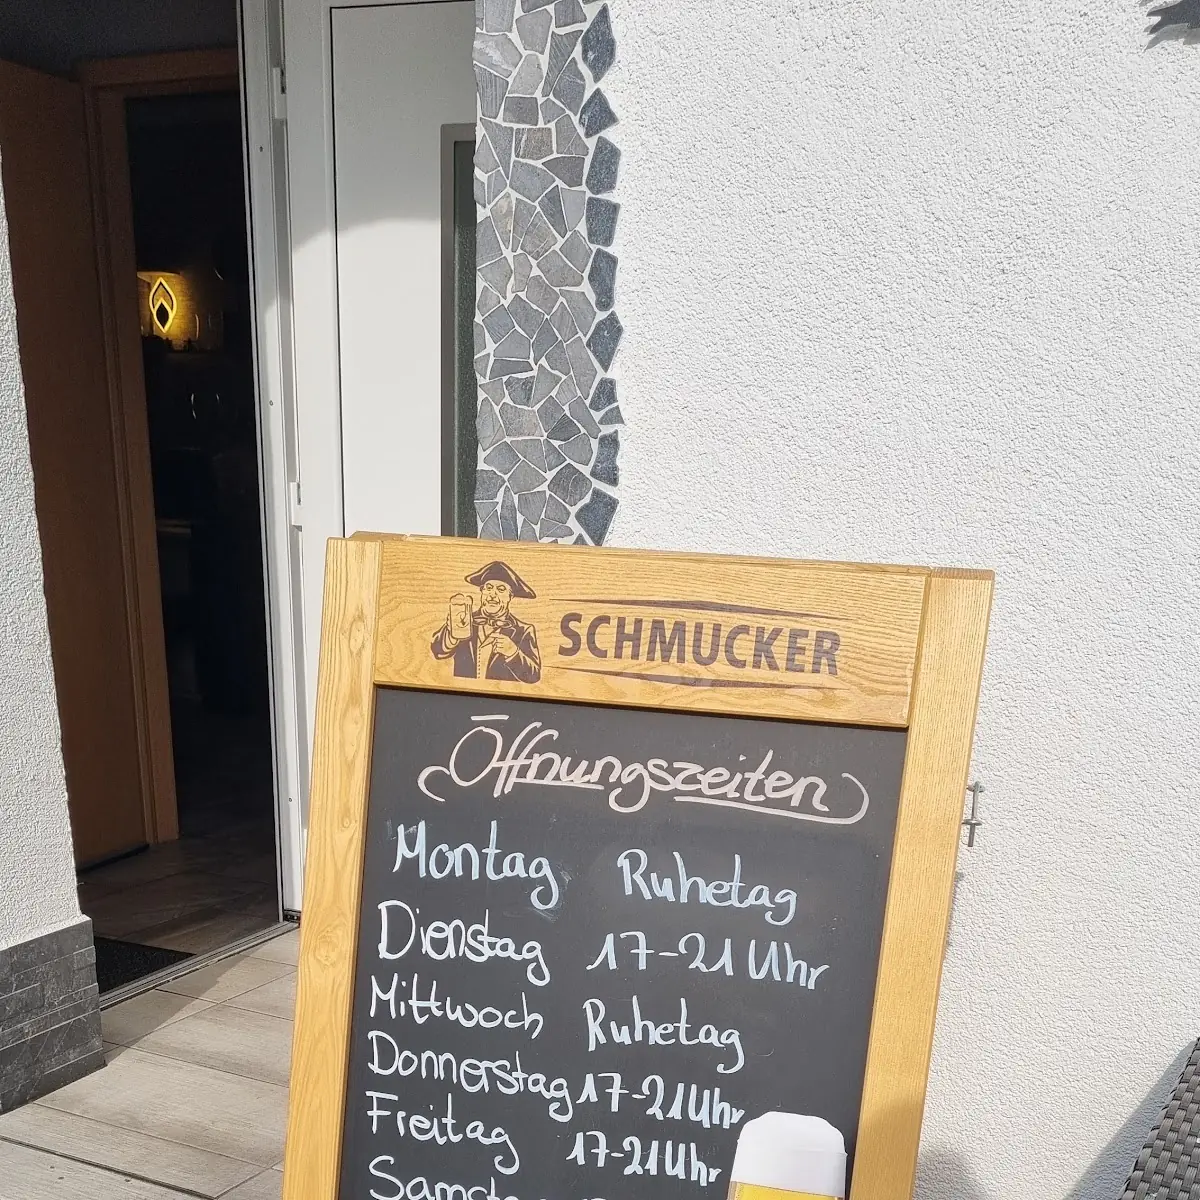 SCHMUCKER
Öffnungszeiten
Montag Ruhetag
Dienstag 17-21 Uhr
Mittwoch Ruhetag
Donnerstag 17-21 Uhr
Freitag 17-21 Uhr